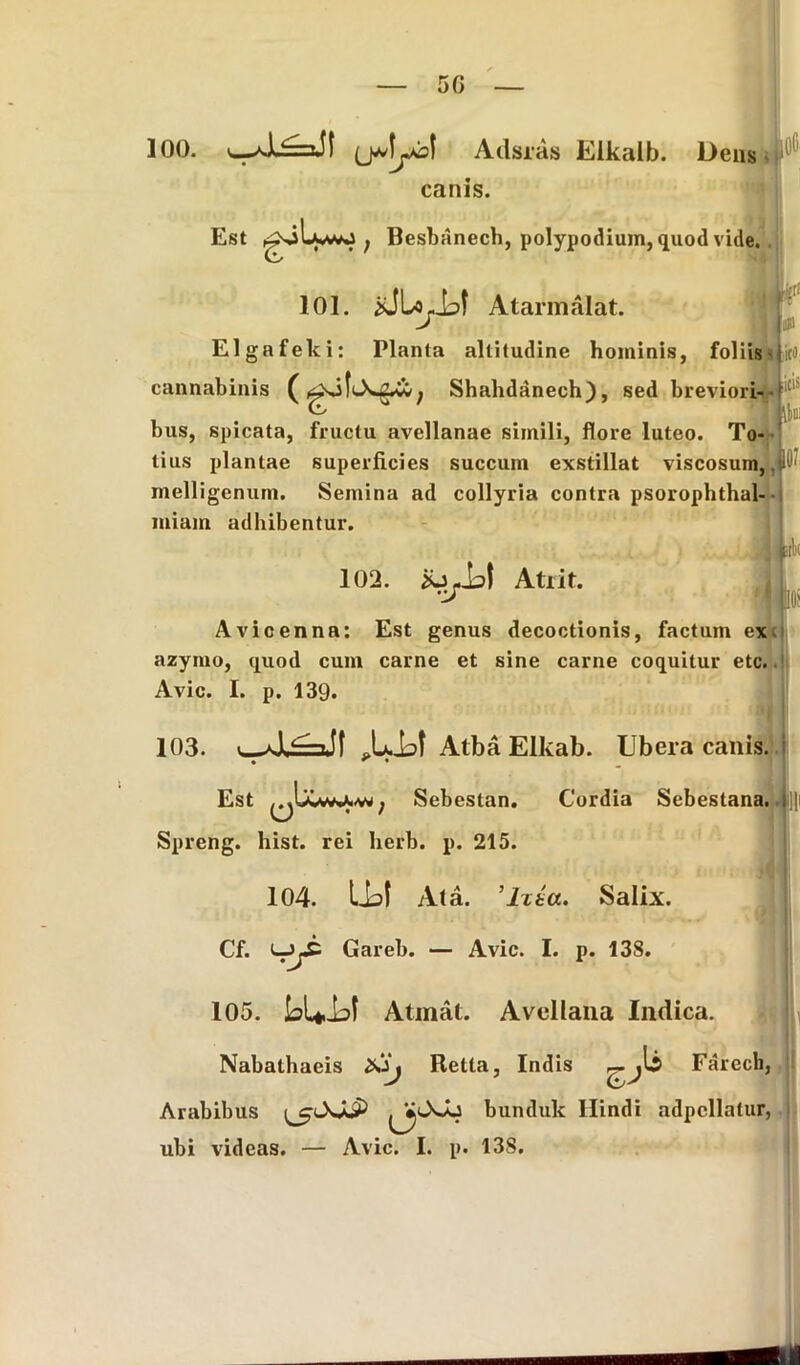 — 56 —
100. اضراس الكلب Adsrâs Elkalb. Dens
canis.
Est بسبانج, Besbânech, polypodium, quod vide.
101. اطرمالة Atarmâlat.
Elgafeki: Planta altitudine hominis, foliis
cannabinis (شهدانج, Shahdânech), sed breviori-
bus, spicata, fructu avellanae simili, flore luteo. To-
tius plantae superficies succum exstillat viscosum,
melligenum. Semina ad collyria contra psorophthal-
miam adhibentur.
102. اطرية Atrit.
Avicenna: Est genus decoctionis, factum ex
azymo, quod cum carne et sine carne coquitur etc.
Avic. I. p. 139.
103. اطباء الكلب Atbâ Elkab. Ubera canis.
Est سبستان, Sebestan. Cordia Sebestana.
Spreng. hist. rei herb. p. 215.
104. اطا Atâ. Ἰτέα. Salix.
Cf. غرب Gareb. — Avic. I. p. 138.
105. اطماط Atmât. Avellana Indica.
Nabathaeis رتة Retta, Indis فارج Fârech,
Arabibus بندق هندى bunduk Hindi adpellatur,
ubi videas. — Avic. I. p. 138.